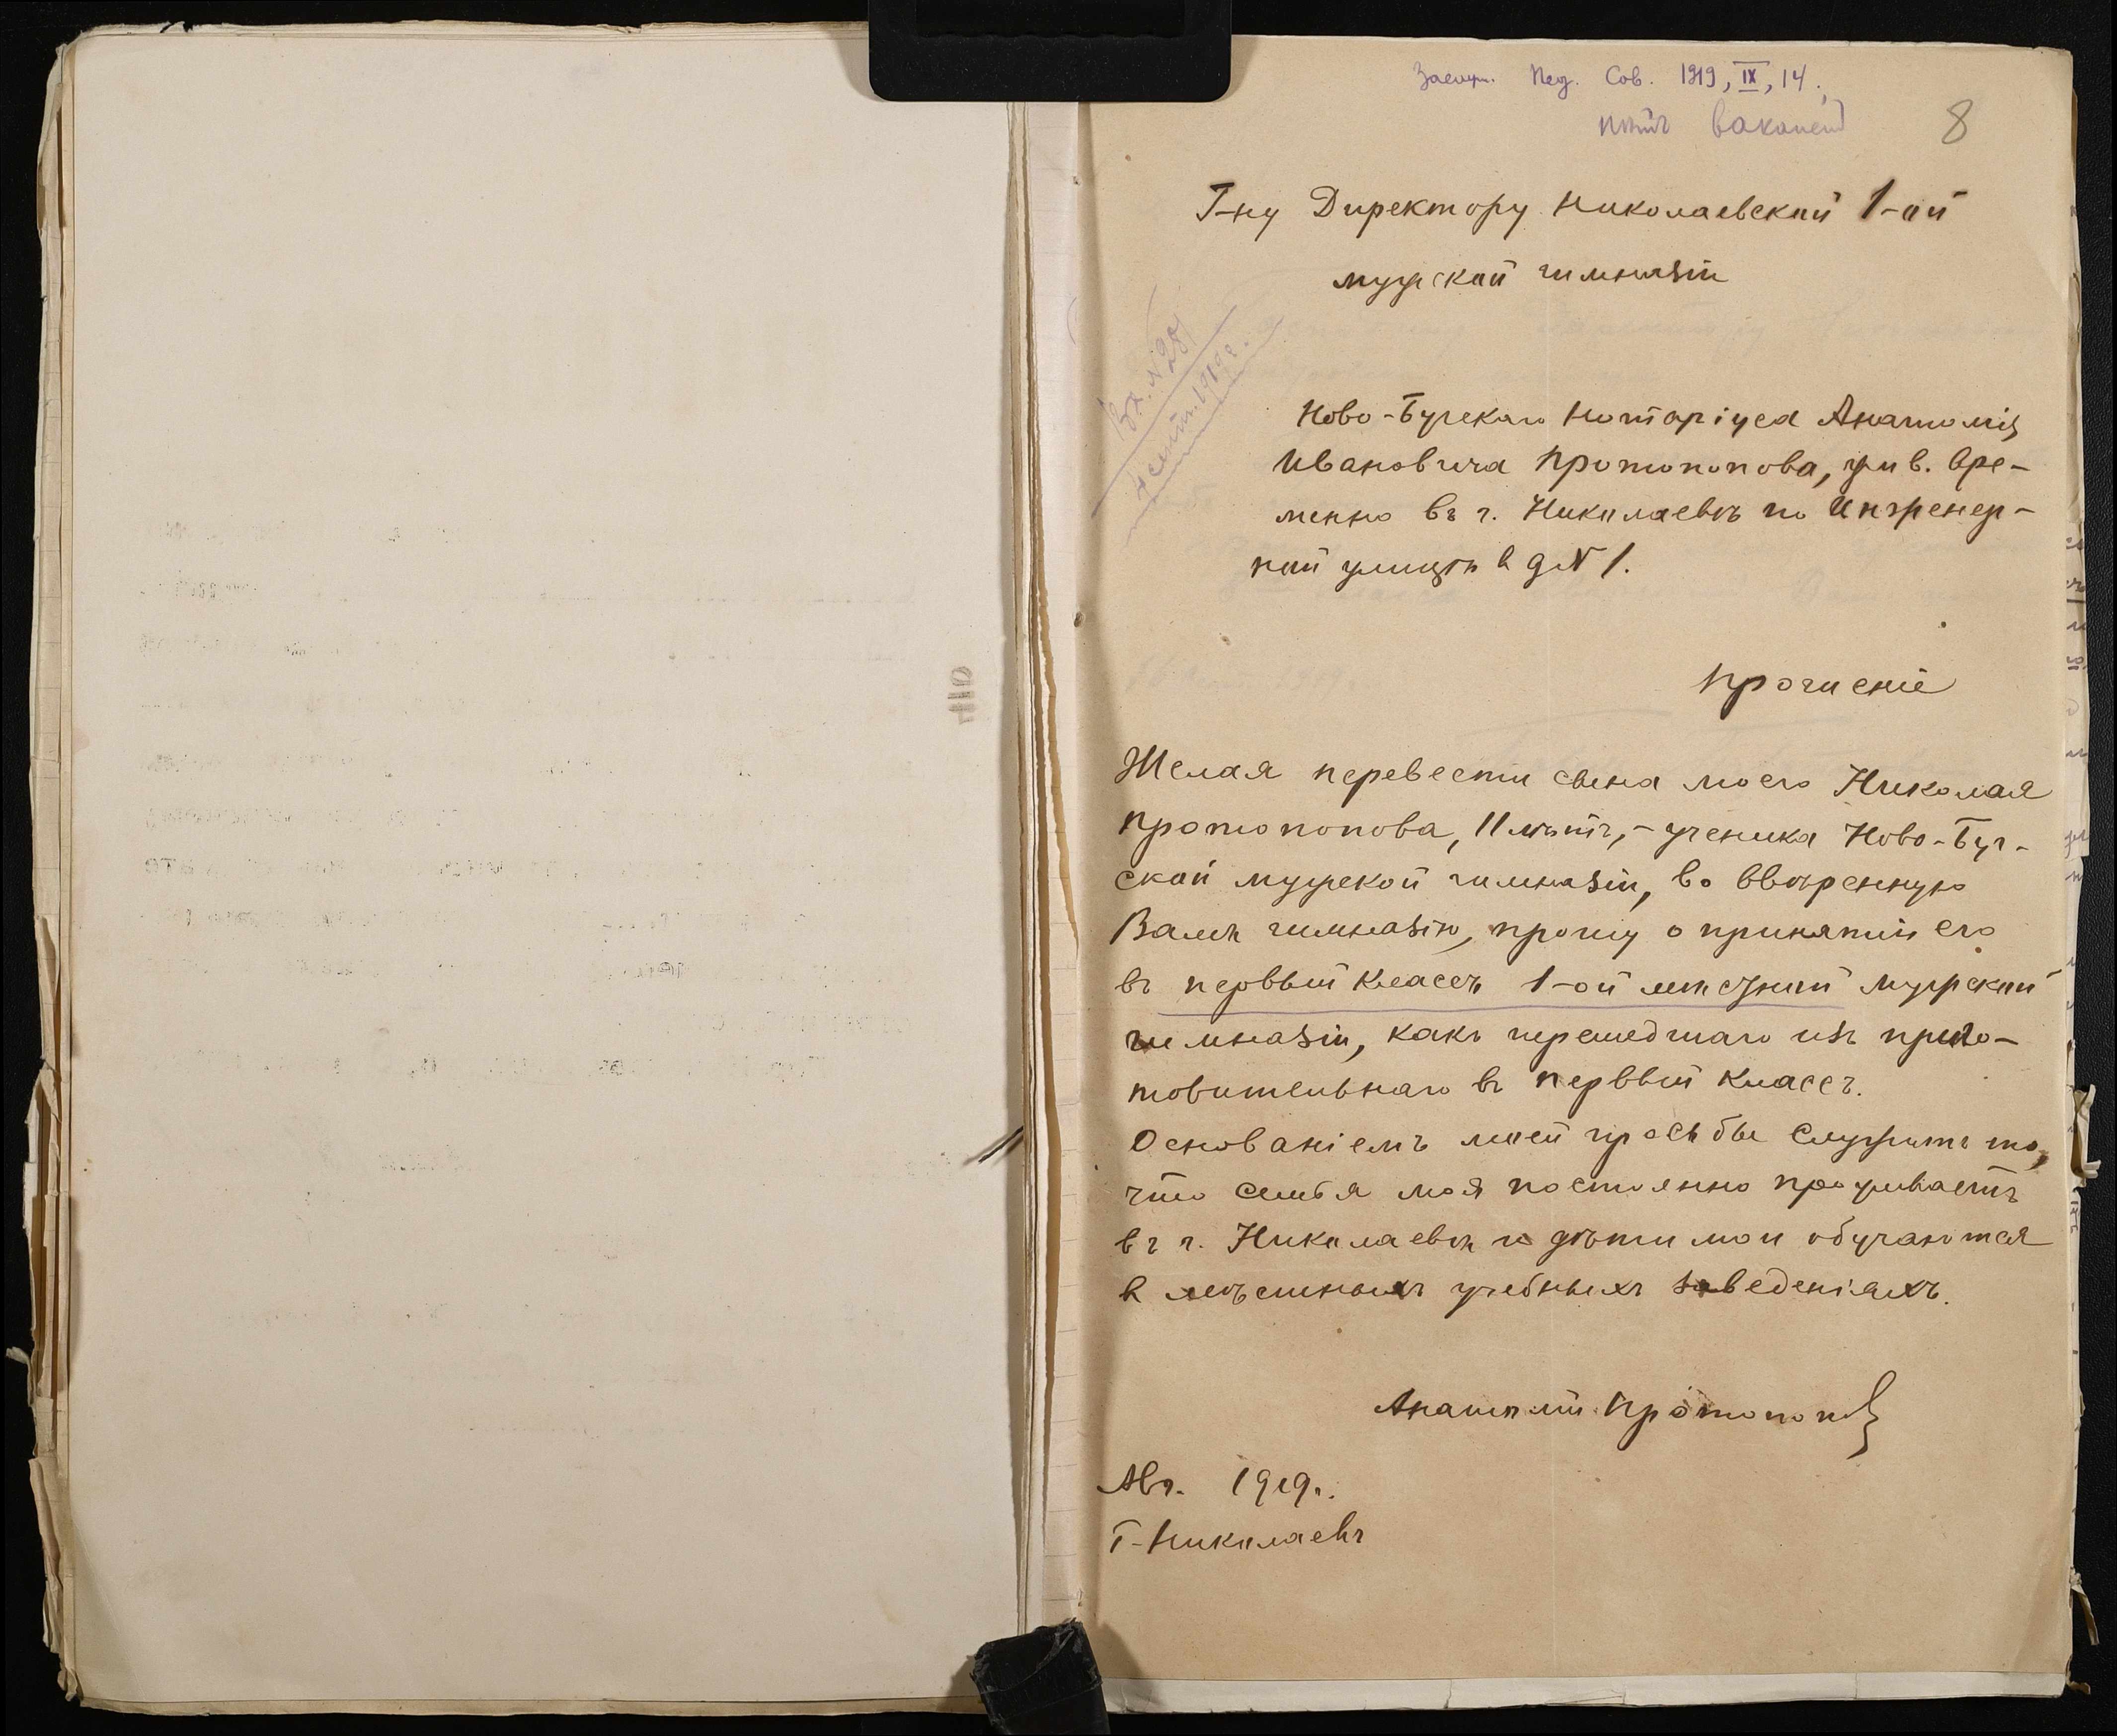 Заслуш. Пед. Сов. 1919, IX, 14.,
нѣтъ ваканс
8
Г-ну Директору Николаевской 1-ой
мужской гимназіи
Вх. № 281
4 сент. 1919 г.
Ново-Бугскаго Нотаріуса Анатолія
Ивановича Протопопова, жив. вре-
менно въ г. Николаевѣ по Инженер-
ной улицѣ в д № 1.
Прошеніе
Желая перевести сына моего Николая
Протопопова, 11 лѣтъ, - ученика Ново-Буг-
ской мужской гимназіи, во ввѣренную
Вамъ гимназію, прошу о принятіи его
въ первый классъ 1-ой мѣстной мужской
гимназіи, какъ перешедшаго изъ приго-
товительнаго въ первый классъ.
Основаніемъ моей просьбы служитъ то,
что семья моя постоянно проживаетъ
въ г. Николаевѣ и дѣти мои обучаются
в мѣстныхъ учебныхъ заведеніяхъ.
Анатолій Протопопов
Авг. 1919 г.
Г. Николаевъ